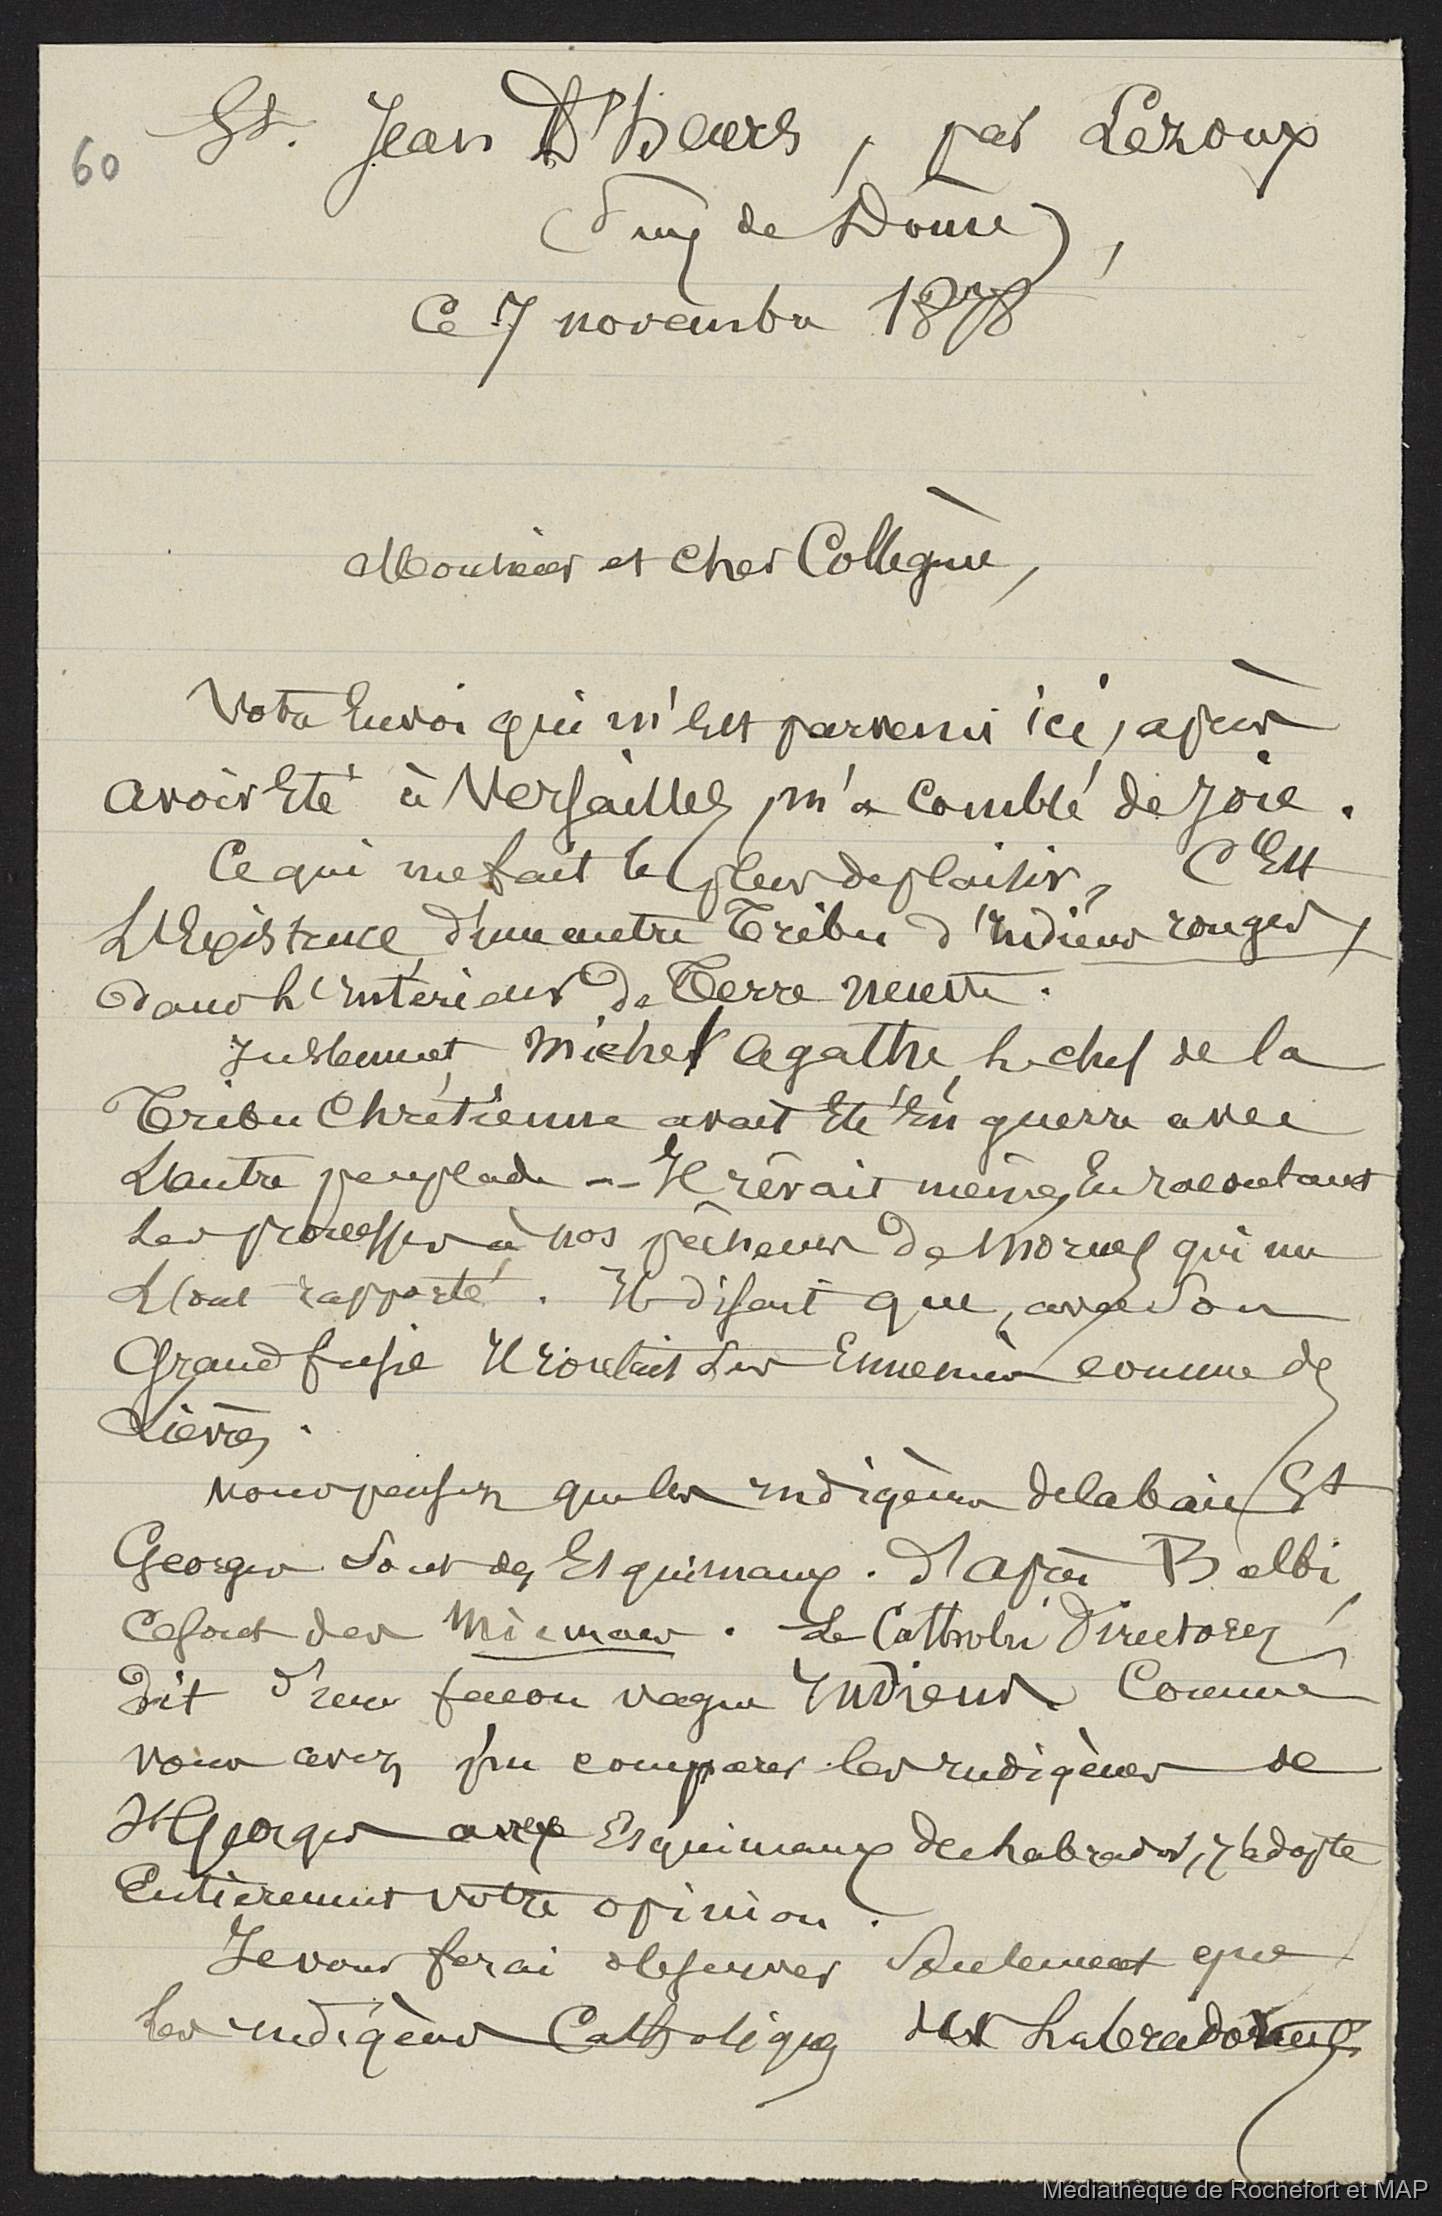 60
St. Jean D'heurs, par Lezoux
(Puy de Dôme),
Ce 7 novembre 1878
Monsieur et cher Collègue,
Votre Envoi qui m'Est parvenu ici, après
avoir Eté à Versailles, m'a comblé de joie.
Ce qui me fait le plus de plaisir, C'Est
L'Existence d'une autre Tribu d'Indiens rouges,
dans l'intérieur de Terre neuve.
Justement, Michel Agathe, le chef de la
Tribu Chrétienne avait Eté En guerre avec
L'autre peuplade -- Il rêvait même, En racontant
Ses prouesses à nos pêcheurs de Morues qui me
L'ont rapporté. Il disait que, avec Son
Grand fusil Il roulait Ses Ennemis comme des
Lièvres.
Vous pensez que les indigènes de la baie St
Georges Sont des Esquimaux. D'après Balbi,
Ce sont des Micmacs. Le Catholic Directory,
Dit d'une façon vague Indiens Comme
vous avez pu comparer les indigènes de
St Georges avec Esquimaux de Labrador, J'adopte
Entièrement votre opinion.
Je vous ferai observer Seulement que
les indigènes Catholiques
Médiathèque de Rochefort et MAP